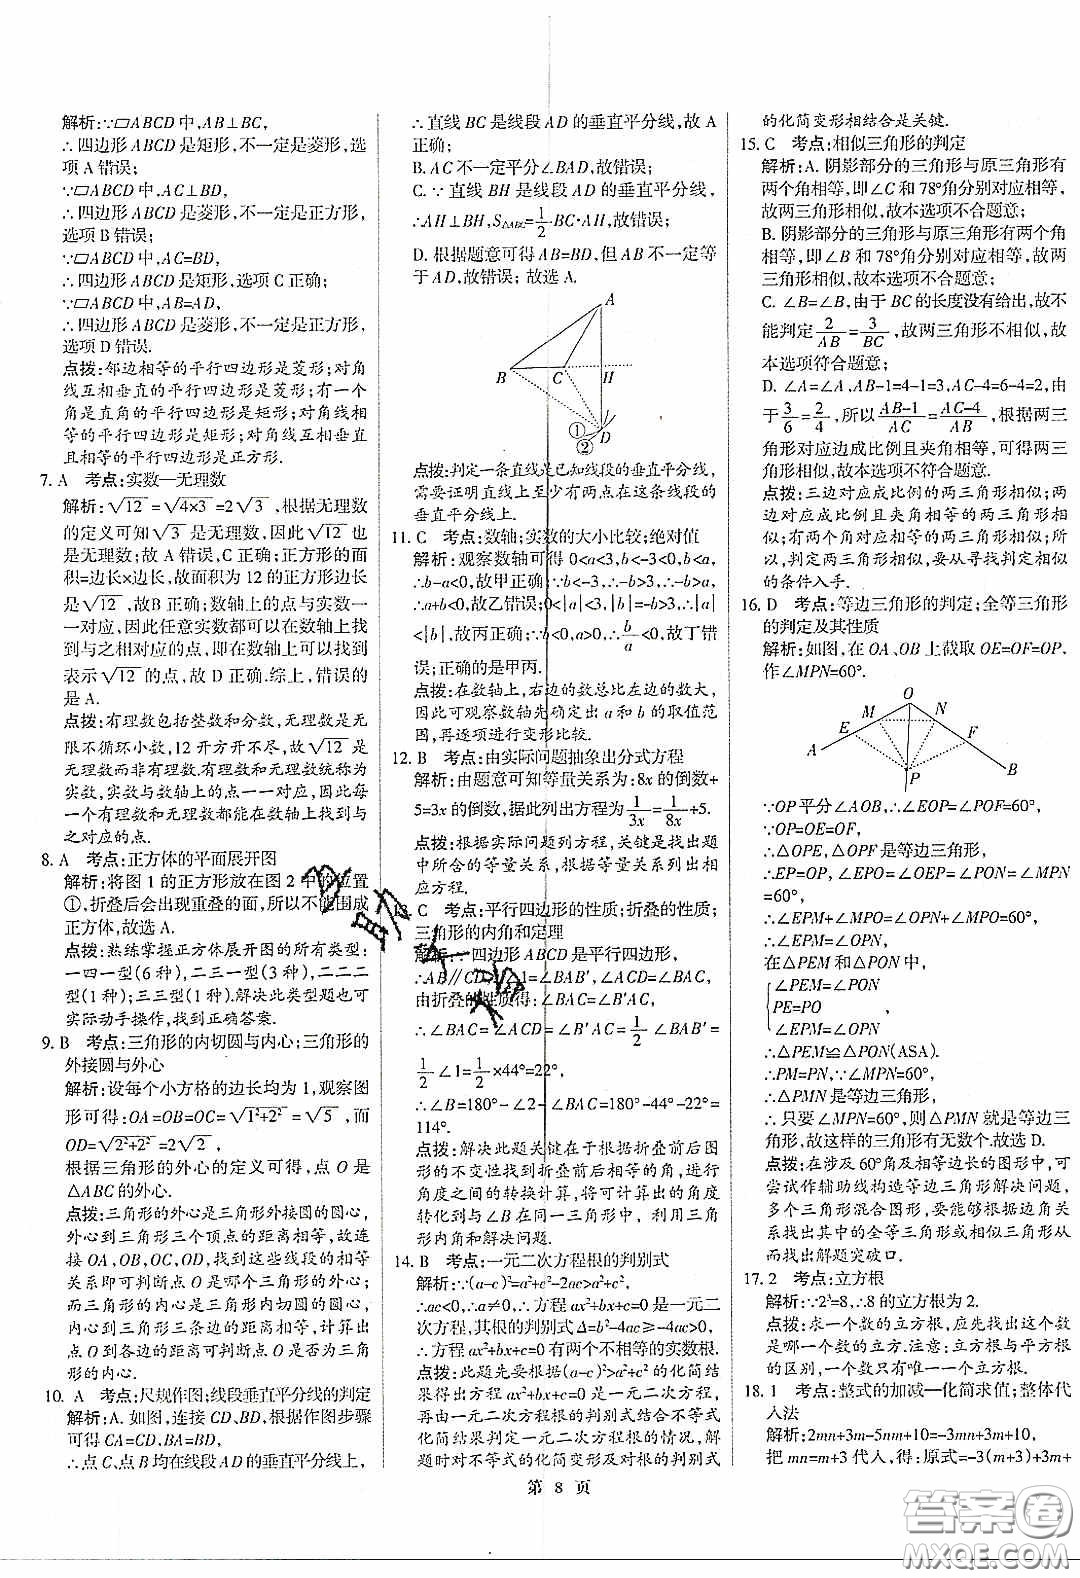 解析:∵▱ABCD中,AB⊥BC,
∴四边形ABCD是矩形,不一定是菱形,选
项A错误;
∵▱ABCD中,AC⊥BD,
∴四边形ABCD是菱形,不一定是正方形,
选项B错误;
∵▱ABCD中,AC=BD,
∴四边形ABCD是矩形,选项C正确;
∵▱ABCD中,AB=AD,
∴四边形ABCD是菱形,不一定是正方形,
选项D错误.
点拨:邻边相等的平行四边形是菱形;对角
线互相垂直的平行四边形是菱形;有一个
角是直角的平行四边形是矩形;对角线相
等的平行四边形是矩形;对角线互相垂直
且相等的平行四边形是正方形.
7. A 考点:实数—无理数
解析:√12=√4×3=2√3,根据无理数
的定义可知√3是无理数,因此√12也
是无理数;故A错误,C正确;正方形的面
积=边长×边长,故面积为12的正方形边长
是√12,故B正确;数轴上的点与实数一
一对应,因此任意实数都可以在数轴上找
到与之相对应的点,即在数轴上可以找到
表示√12的点,故D正确.综上,错误的
是A.
点拨:有理数包括整数和分数,无理数是无
限不循环小数,12开方开不尽,故√12是
无理数而非有理数.有理数和无理数统称为
实数,实数与数轴上的点是一一对应,因此
每一个有理数和无理数都能在数轴上找到与
之对应的点.
8. A 考点:正方体的平面展开图
解析:将图1的正方形放在图2中的位置
①,折叠后会出现重叠的面,所以不能围成
正方体,故选A.
点拨:熟练掌握正方体展开图的所有类型:
一四一型(6种),二三一型(3种),二二二
型(1种);三三型(1种).解决此类型题也可
实际动手操作,找到正确答案.
9. B 考点:三角形的内切圆与内心;三角形的
外接圆与外心
解析:设每个小方格的边长均为1,观察图
形可得:OA=OB=OC=√1²+2²=√5,而
OD=√2²+2²=2√2,
根据三角形的外心的定义可得,点O是
△ABC的外心.
点拨:三角形的外心是三角形外接圆的圆心,
外心到三角形三个顶点的距离相等,故连
接OA,OB,OC,OD,找出这四条线段的相等
关系即可判断点O是哪个三角形的外心;
而三角形的内心是三角形内切圆的圆心,
内心到三角形三条边的距离相等,计算出
点O到各边的距离可判断点O是否为三角
形的内心.
10. A 考点:尺规作图;线段垂直平分线的判定
解析:A.如图,连接CD,BD,根据作图步骤
可得CA=CD,BA=BD,
∴点C、点B均在线段AD的垂直平分线上,
∴直线BC是线段AD的垂直平分线,故A
正确;
B. AC不一定平分∠BAD,故错误;
C. ∵直线BH是线段AD的垂直平分线,
∴AH⊥BH,S△ABC=1/2·BC·AH,故错误;
D.根据题意可得AB=BD,但AB不一定等
于AD,故错误;故选A.
A
B C H
① D
②
点拨:判定一条直线是已知线段的垂直平分线,
需要证明直线上至少有两点在这条线段的
垂直平分线上.
11. C 考点:数轴;实数的大小比较;绝对值
解析:观察数轴可得0<a<3,b<-3<0,b<a,
∴b-a<0,故甲正确;∵b<-3,∴-b>3,∴-b>a,
∴a+b<0,故乙错误;0<|a|<3,|b|=-b>3,|a|
<|b|,故丙正确;∵b<0,a>0,∴b/a<0,故丁错
误;正确的是甲丙.
点拨:在数轴上,右边的数总比左边的数大,
因此可观察数轴先确定出a和b的取值范
围,再逐项进行变形比较.
12. B 考点:由实际问题抽象出分式方程
解析:由题意可知等量关系为:8x的倒数+
5=3x的倒数,据此列出方程为1/3x=1/8x+5.
点拨:根据实际问题列方程,关键是找出题
中所含的等量关系,然后根据等量关系列出相
应方程.
13. C 考点:平行四边形的性质;折叠的性质;
三角形的内角和定理
解析:∵四边形ABCD是平行四边形,
∴AB∥CD,∴∠1=∠BAB′,∠ACD=∠BAC,
由折叠的性质得:∠BAC=∠B′AC,
∴∠BAC=∠ACD=∠B′AC=1/2∠BAB′=
1/2∠1=1/2×44°=22°,
∴∠B=180°-∠2-∠BAC=180°-44°-22°=
114°.
点拨:解决此题关键在于根据折叠前后图
形的不变性找到折叠前后相等的角,进行
角度之间的转换计算,将可求出的角度
转化到与∠B在同一三角形中,利用三角
形内角和解决问题.
14. B 考点:一元二次方程根的判别式
解析:∵(a-c)²=a²+c²-2ac>a²+c²,
∴ac<0,∴a≠0,∴方程ax²+bx+c=0是一元二
次方程,其根的判别式Δ=b²-4ac≥-4ac>0,
∴方程ax²+bx+c=0有两个不相等的实数根.
点拨:此题先要根据(a-c)²>a²+c²的化简结
果得出方程ax²+bx+c=0是一元二次方程,
再由一元二次方程根的判别式结合不等式
化简结果判定一元二次方程根的情况,解
题时对不等式的化简变形及对根的判别式
的化简变形相结合是关键.
15. C 考点:相似三角形的判定
解析:A.阴影部分的三角形与原三角形有
两个角相等,即∠C和78°角分别对应相等,
故两三角形相似,故本选项不合题意;
B.阴影部分的三角形与原三角形有两个角
相等,即∠B和78°角分别对应相等,故两
三角形相似,故本选项不合题意;
C. ∠B=∠B,由于BC的长度没有给出,故不
能判定2/AB=3/BC,故两三角形不相似,故
本选项符合题意;
D. ∠A=∠A,AB-1=4-1=3,AC-4=6-4=2,由
于3/6=2/4,所以AB-1/AC=AC-4/AB,根据两三
角形对应边成比例且夹角相等,可得两三
角形相似,故本选项不符合题意.
点拨:三边对应成比例的两三角形相似;两
边对应成比例且夹角相等的两三角形相
似;有两个角对应相等的两三角形相似;所
以,判定两三角形相似,要从寻找判定相似
的条件入手.
16. D 考点:等边三角形的判定;全等三角形
的判定及其性质
解析:如图,在OA、OB上截取OE=OF=OP,
作∠MPN=60°.
O
M N
E F
A P B
∵OP平分∠AOB,∴∠EOP=∠POF=60°,
∵OP=OE=OF,
∴△OPE,△OPF是等边三角形,
∴EP=OP,∠EPO=∠OEP=∠PON=∠MPN
=60°,
∴∠EPM+∠MPO=∠OPN+∠MPO=60°,
∴∠EPM=∠OPN,
在△PEM和△PON中,
∠PEM=∠PON
PE=PO
∠EPM=∠OPN
∴△PEM≌△PON(ASA).
∴PM=PN,∵∠MPN=60°,
∴△PMN是等边三角形,
∴只要∠MPN=60°,则△PMN就是等边三
角形,故这样的三角形有无数个.故选D.
点拨:在涉及60°角及相等边长的图形中,可
尝试作辅助线构造等边三角形解决问题,
多个三角形混合图形,要能够根据边角关
系找出其中的全等三角形或相似三角形从
而找出解题突破口.
17. 2 考点:立方根
解析:∵2³=8,∴8的立方根为2.
点拨:求一个数的立方根,应先找出这个数
是哪一个数的立方.注意:立方根与平方根
的区别,一个数只有唯一一个立方根.
18. 1 考点:整式的加减—化简求值;整体代
入法
解析:2mn+3m-5nm+10=-3mn+3m+10,
把mn=m+3代人,得:原式=-3(m+3)+3m+
第 8 页
答案圈
MXQE.COM